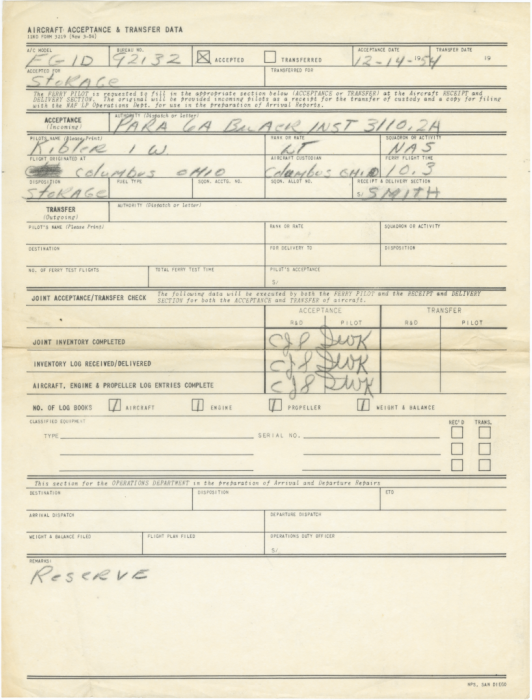 AIRCRAFT ACCEPTANCE & TRANSFER DATA
A/C MODEL BUREAU NO. ACCEPTED TRANSFERRED ACCEPTANCE DATE TRANSFER DATE
FG1D 92132 12-14-1954 19
ACCEPTED FOR TRANSFERRED FOR
STORAGE
The FERRY PILOT is requested to fill in the appropriate section below (ACCEPTANCE or TRANSFER) at the Aircraft RECEIPT and
DELIVERY SECTION. The original will be provided incoming pilots as a receipt for the transfer of custody and a copy for filing
with the NAF LP Operations Dept. for use in the preparation of Arrival Reports.
ACCEPTANCE AUTHORITY (Dispatch or Letter)
(Incoming) PARA 6A BUAER INST 3110.2A
PILOT'S NAME (Please Print) RANK OR RATE SQUADRON OR ACTIVITY
KIBLER I W LT NAS
FLIGHT ORIGINATED AT AIRCRAFT CUSTODIAN FERRY FLIGHT TIME
COLUMBUS OHIO COLUMBUS OHIO 10.3
DISPOSITION FUEL TYPE SQDN. ACCTG. NO. SQDN. ALLOT NO. RECEIPT & DELIVERY SECTION
STORAGE S/ SMITH
TRANSFER AUTHORITY (Dispatch or Letter)
(Outgoing)
PILOT'S NAME (Please Print) RANK OR RATE SQUADRON OR ACTIVITY
DESTINATION FOR DELIVERY TO DISPOSITION
NO. OF FERRY TEST FLIGHTS TOTAL FERRY TEST TIME PILOT'S ACCEPTANCE
S/
JOINT ACCEPTANCE/TRANSFER CHECK The following data will be executed by both the FERRY PILOT and the RECEIPT and DELIVERY
SECTION for both the ACCEPTANCE and TRANSFER of aircraft.
ACCEPTANCE TRANSFER
R&D PILOT R&D PILOT
JOINT INVENTORY COMPLETED
INVENTORY LOG RECEIVED/DELIVERED
AIRCRAFT, ENGINE & PROPELLER LOG ENTRIES COMPLETE
NO. OF LOG BOOKS 1 AIRCRAFT 1 ENGINE 1 PROPELLER 1 WEIGHT & BALANCE
CLASSIFIED EQUIPMENT REC'D TRANS.
TYPE SERIAL NO.
This section for the OPERATIONS DEPARTMENT in the preparation of Arrival and Departure Repairs
DESTINATION DISPOSITION ETD
ARRIVAL DISPATCH DEPARTURE DISPATCH
WEIGHT & BALANCE FILED FLIGHT PLAN FILED OPERATIONS DUTY OFFICER
S/
REMARKS:
RESERVE